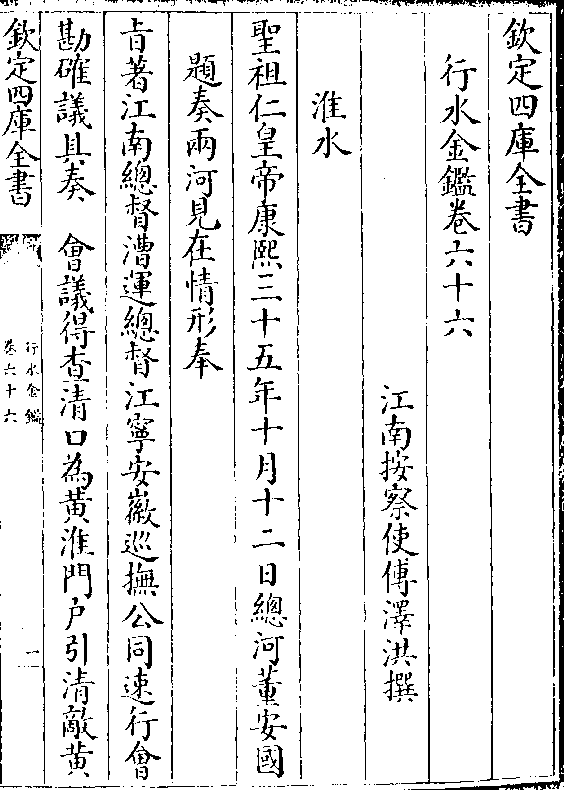 欽定四庫全書
行水金鑑卷六十六
江南按察使傅澤洪撰
淮水
聖祖仁皇帝康熙三十五年十月十二日總河董安國
題奏兩河見在情形奉
旨著江南總督漕運總督江寧安徽巡撫公同速行會
勘確議具奏　會議得查清口為黃淮門户引清敵黃
欽定四庫全書
行水金鑑
卷六十六
一